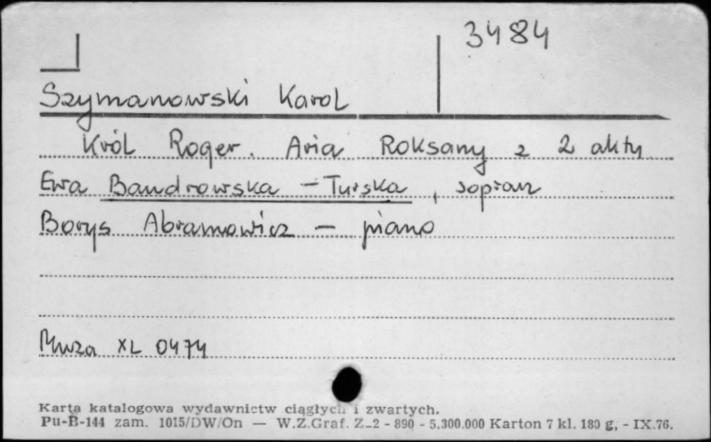 3484
Szymanowski Karol
Król Roger. Aria Roksany z 2 aktu
Ewa Bandrowska - Turska, sopran
Borys Abramowicz - piano
Muza XL 0474
Karta katalogowa wydawnictw ciągłych i zwartych.
Pu-B-144 zam. 1015/DW/On — W.Z.Graf. Z-2 - 890 - 5.300.000 Karton 7 kl. 180 g, - IX.76.